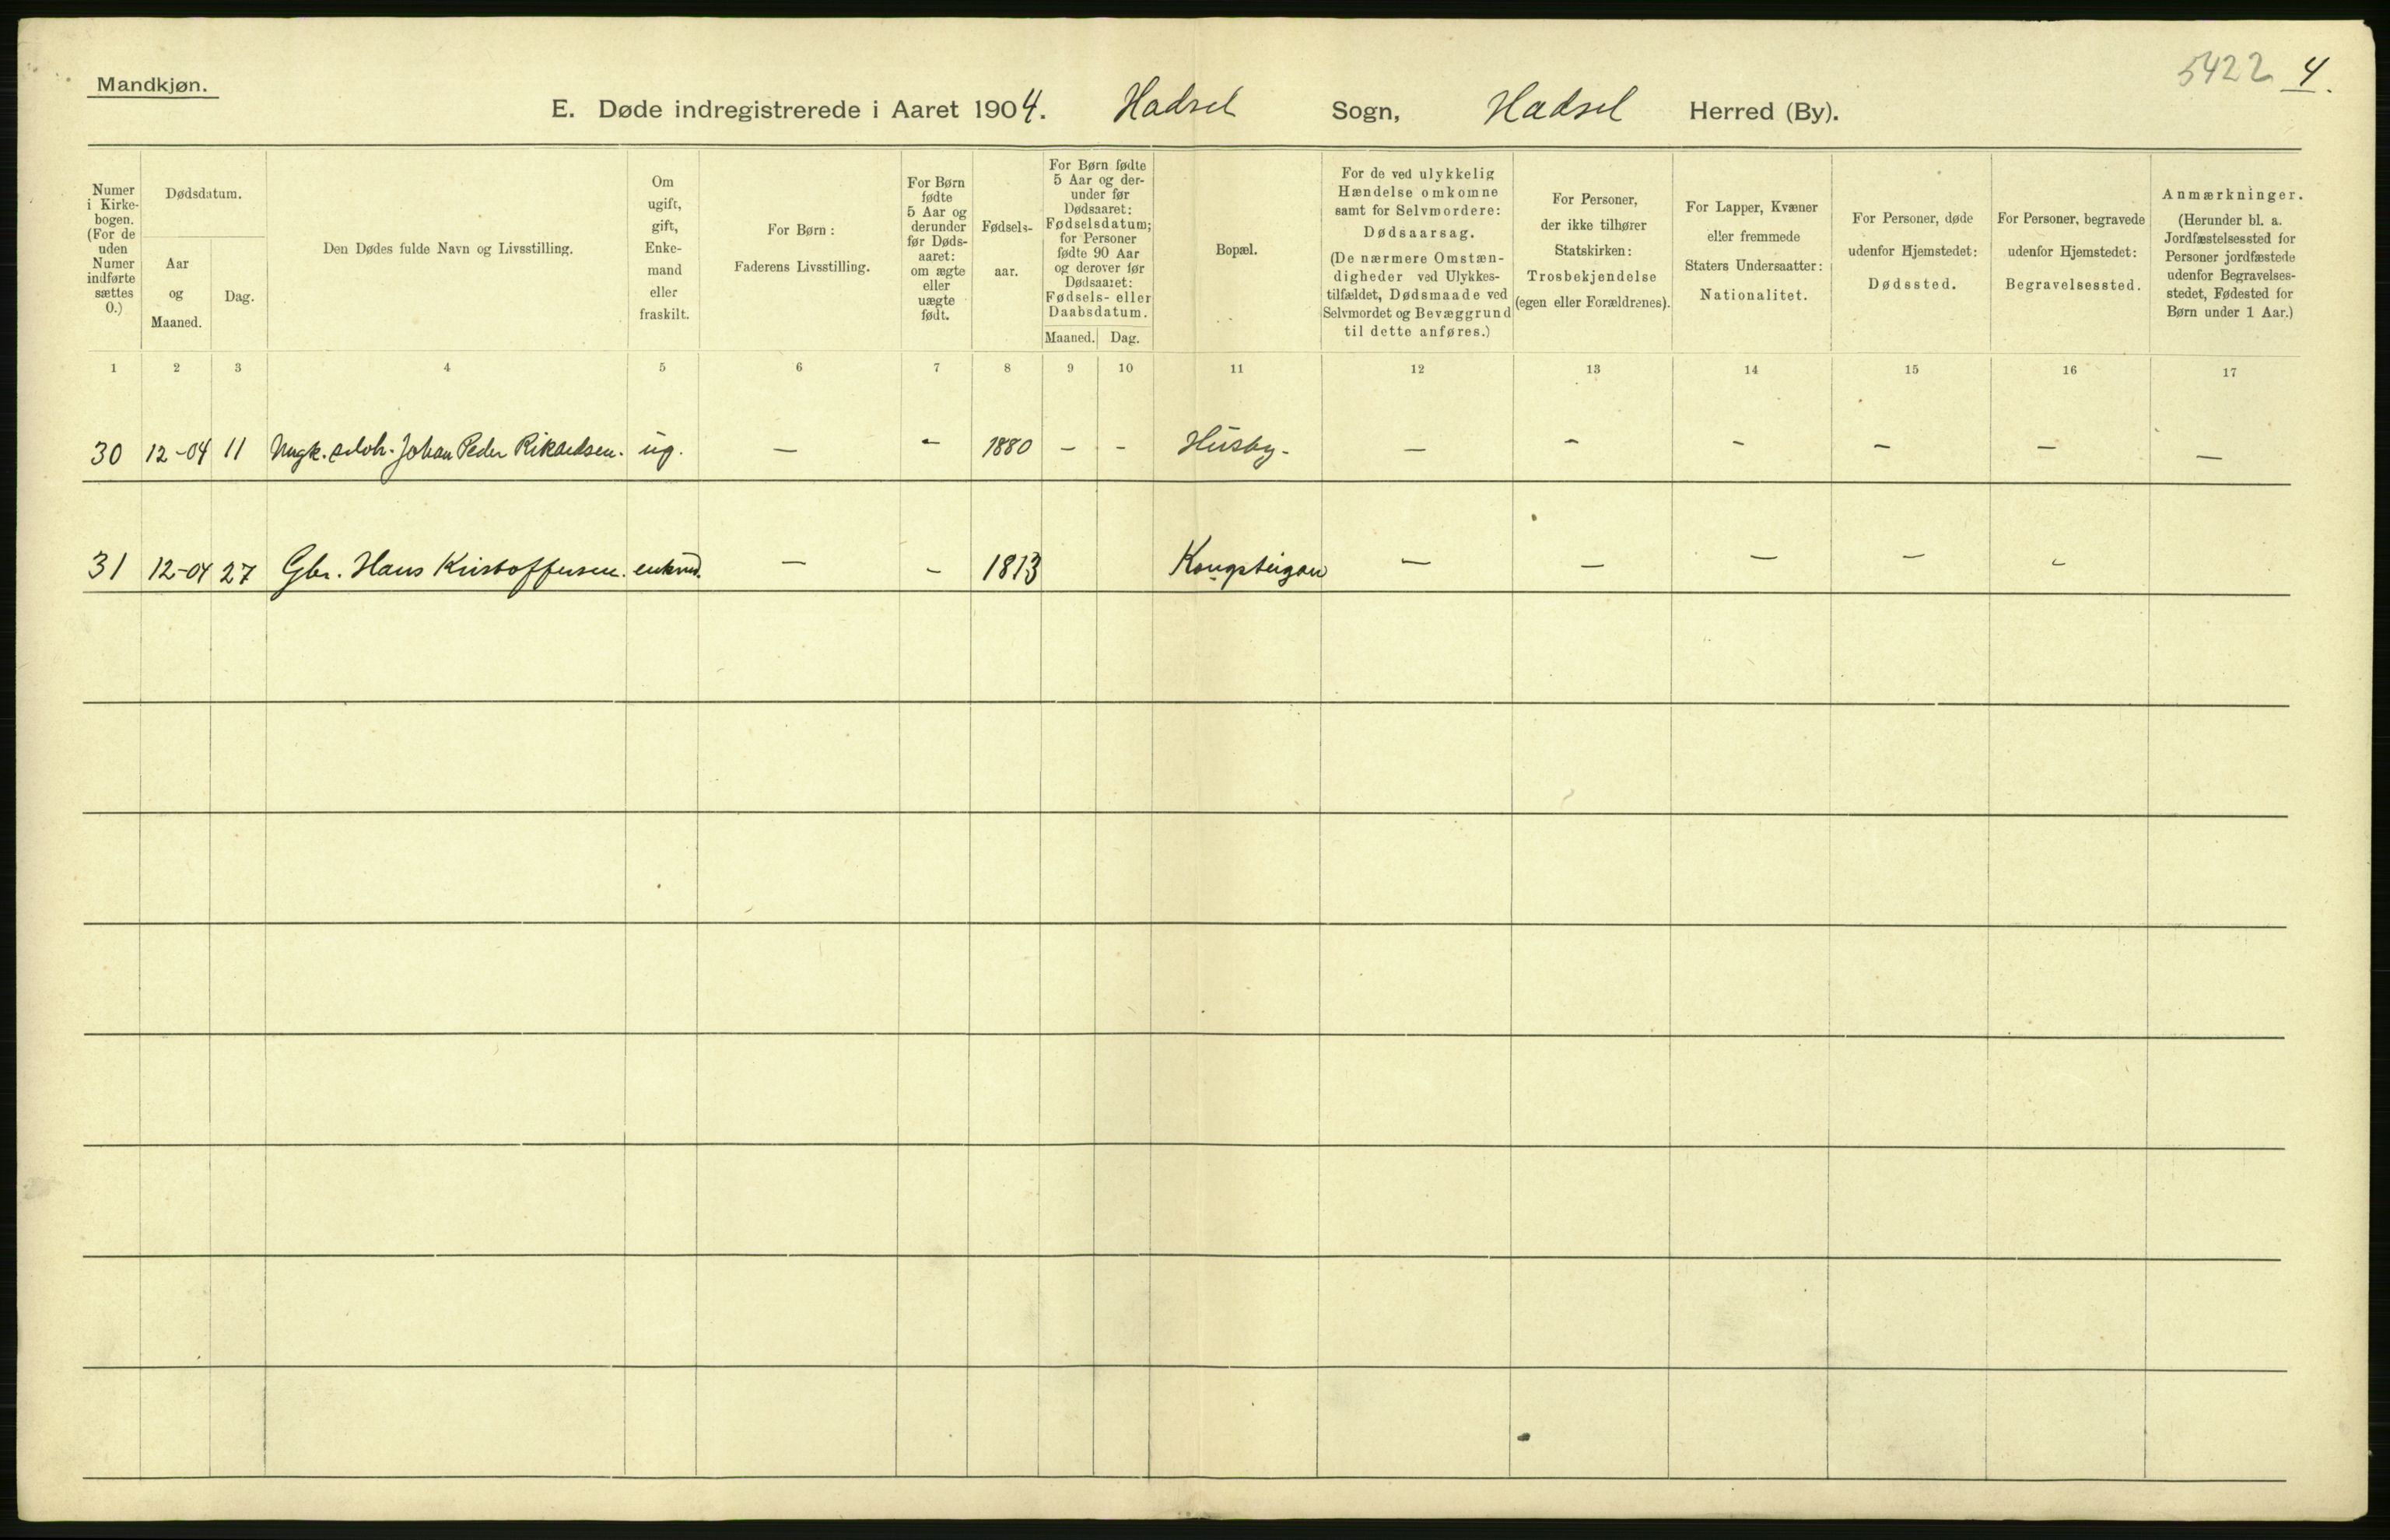 Mandkjøn.
5422 4.
E. Døde indregistrerede i Aaret 1904. Hadsel Sogn, Hadsel Herred (By).
Numer i Kirke-bogen. (For de uden Numer indførte sættes 0.)
Dødsdatum.
Aar og Maaned.
Dag.
Den Dødes fulde Navn og Livsstilling.
Om ugift, gift, Enke-mand eller fraskilt.
For Børn: Faderens Livsstilling.
For Børn fødte 5 Aar og derunder før Døds-aaret: om ægte eller uægte født.
Fødsels-aar.
For Børn fødte 5 Aar og der-under før Dødsaaret: Fødselsdatum; for Personer fødte 90 Aar og derover før Dødsaaret: Fødsels- eller Daabsdatum.
Maaned. Dag.
Bopæl.
For de ved ulykkelig Hændelse omkomne samt for Selvmordere: Dødsaarsag. (De nærmere Omstæn-digheder ved Ulykkes-tilfældet, Dødsmaade ved Selvmordet og Bevæggrund til dette anføres.)
For Personer, der ikke tilhører Statskirken: Trosbekjendelse (egen eller Forældrenes).
For Lapper, Kvæner eller fremmede Staters Undersaatter: Nationalitet.
For Personer, døde udenfor Hjemstedet: Dødssted.
For Personer, begravede udenfor Hjemstedet: Begravelsessted.
Anmærkninger. (Herunder bl. a. Jordfæstelsessted for Personer jordfæstede udenfor Begravelses-stedet, Fødested for Børn under 1 Aar.)
1 2 3 4 5 6 7 8 9 10 11 12 13 14 15 16 17
30 12-04 11 Ungk. Johan Peder Rikardsen. ug. — - 1880 - - Husby - — - - - — —
31 12-04 27 Gbr. Hans Kristoffersen. enkmd. — - 1813 Kongsteigan — — — — -